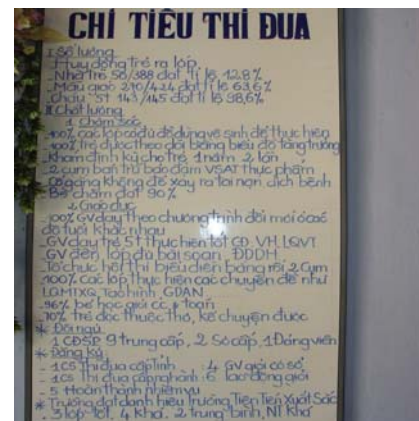 CHỈ TIÊU THI ĐUA
I Số lượng
- Huy động trẻ ra lớp.
- Nhà trẻ 50/388 đạt tỉ lệ 12,8%
- Mẫu giáo 270/424 đạt tỉ lệ 63,6%
- Cháu 5T 143/145 đạt tỉ lệ 98,6%
II Chất lượng
1. Chăm sóc
- 100% các lớp có đủ đồ dùng vệ sinh để thực hiện
- 100% trẻ được theo dõi bằng biểu đồ tăng trưởng
- Khám định kỳ cho trẻ 1 năm 2 lần
- 2 cụm bán trú bảo đảm VSAT thực phẩm
- Cố gắng không để xảy ra tai nạn dịch bệnh
- Bé chăm đạt 90%
2. Giáo dục
- 100% GV dạy theo chương trình đổi mới ở các
độ tuổi khác nhau
- GV dạy trẻ 5T thực hiện tốt CĐ VH, LQVT
- GV đến lớp đủ bài soạn ĐDDH
- Tổ chức hội thi biểu diễn bóng rổi 2 Cụm
- 100% các lớp thực hiện các chuyên đề như
LQMTXQ, Tạo hình, GDAN
- 96% bé học giỏi cc + toán
- 70% trẻ đọc thuộc thơ, kể chuyện được
* Đội ngũ
1 CĐSP 9 trung cấp, 2 Sơ cấp, 1 Đảng viên
* Đăng ký
- 1 CS Thi đua cấp Tỉnh : 4 GV giỏi cơ sở
- 1 CS Thi đua cấp ngành : 6 lao động giỏi
- 5 Hoàn thành nhiệm vụ
* Trường đạt danh hiệu Trường Tiên Tiến Xuất Sắc
- 3 lớp tốt, 4 khá, 2 trung bình, NT Khá